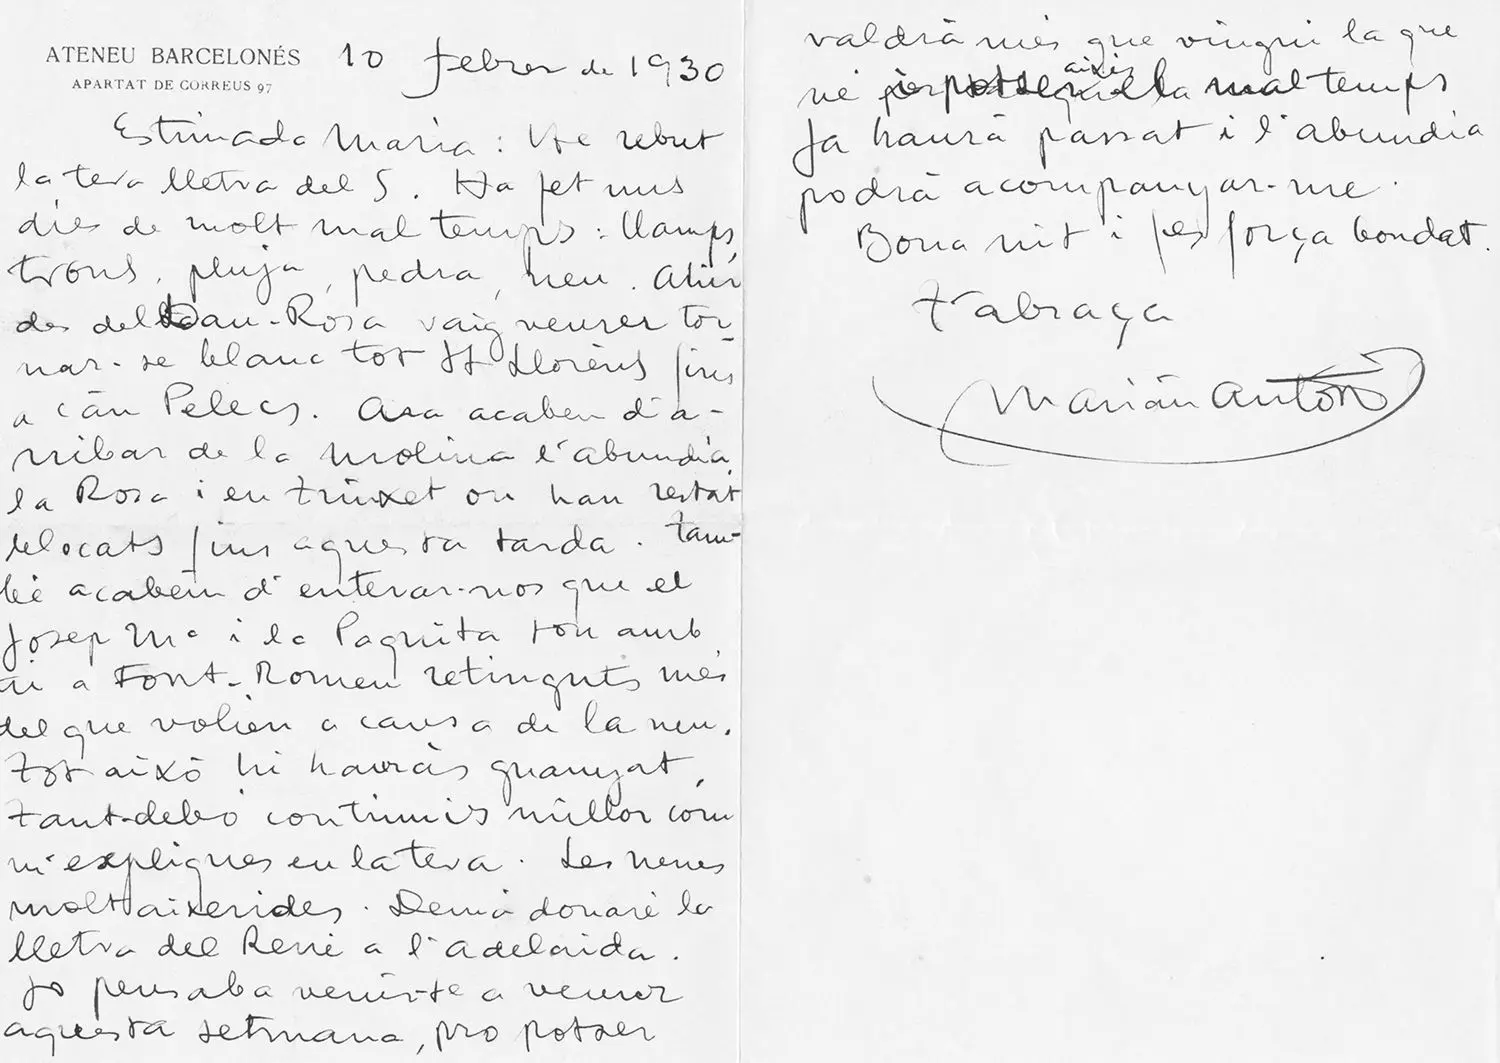 ATENEU BARCELONÉS
APARTAT DE CORREUS 97
10 febrer de 1930
Estimada Maria: He rebut
la teva lletra del 5. Ha fet uns
dies de molt mal temps: llamps,
trons, pluja, pedra, neu. Ahir
des del Dau-Rosa vaig veurer tor
nar-se blanc tot St Llorens fins
a cân Pelecs. Ara acaben d'a-
rribar de la Molina l'abundia,
la Rosa i en Trinxet on han restat
blocats fins aquesta tarda. Tam-
bé acabem d'enterar-nos que el
Josep Mª i la Paquita son amb
tú a Font-Romeu retinguts més
del que volien a causa de la neu.
Tot aixó hi hauràs guanyat.
Tant-debó continuis millor com
m'expliques en la teva. Les nenes
molt aixerides. Demà donaré la
lletra del René a l'Adelaida.
Jo pensaba venir-te a veurer
aquesta setmana, pro potser
valdrà més que vingui la que
vé aixís la mal temps
Ja haurà passat i l'abundia
podrà acompanyar-me.
Bona nit i fes força bondat.
T'abraça
Marian Anton